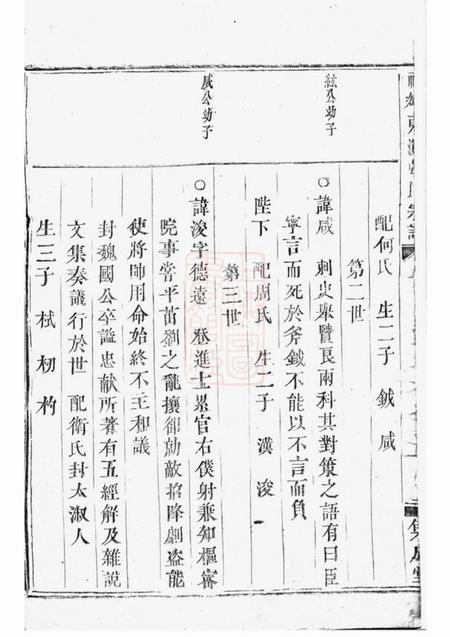 東漢
宗譜
集
堂
配何氏 生二子 鉞 咸
第二世
絃公幼子
○諱咸 刺史舉賢良兩科其對策之語有曰臣
寧言而死於斧鉞不能以不言而負
陛下 配周氏 生二子 潢 浚
第三世
咸公幼子
○諱浚字德遠 登進士累官右僕射兼知樞密
院事嘗平苗劉之亂攘郤勍敵招降劇盗能
使將帥用命始終不主和議
封魏國公卒謚忠献所著有五經解及雜說
文集奏議行於世 配衛氏封太淑人
生三子 栻 杓